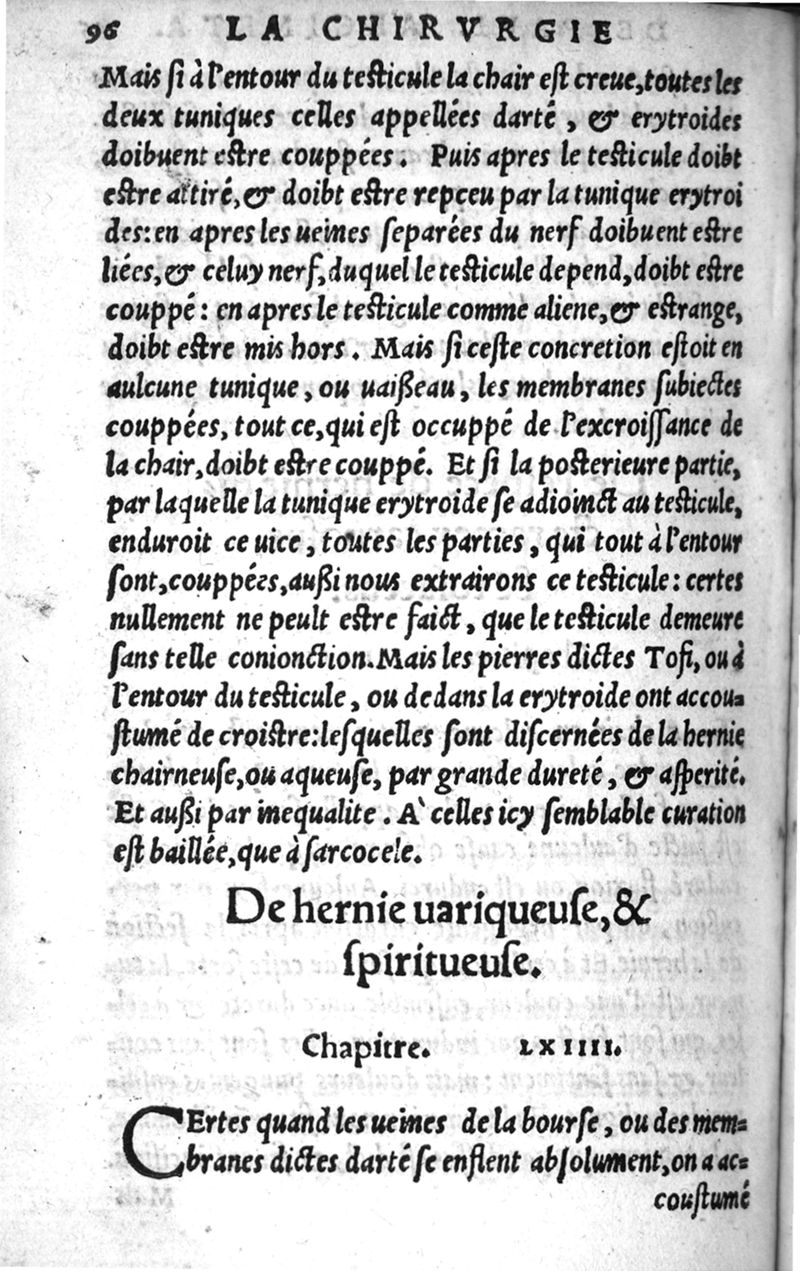 96 LA CHIRVRGIE
Mais ſi à l'entour du teſticule la chair eſt creue, toutes les
deux tuniques celles appellées darté, & erytroides
doibuent eſtre couppées. Puis apres le teſticule doibt
eſtre attiré, & doibt eſtre repçeu par la tunique erytroi
des: en apres les ueines ſeparées du nerf doibuent eſtre
liées, & celuy nerf, duquel le teſticule depend, doibt eſtre
couppé: en apres le teſticule comme aliene, & eſtrange,
doibt eſtre mis hors. Mais ſi ceſte concretion eſtoit en
aulcune tunique, ou uaißeau, les membranes ſubiectes
couppées, tout ce, qui eſt occuppé de l'excroiſſance de
la chair, doibt eſtre couppé. Et ſi la poſterieure partie,
par laquelle la tunique erytroide ſe adioinct au teſticule,
enduroit ce uice, toutes les parties, qui tout à l'entour
ſont, couppées, außi nous extrairons ce teſticule: certes
nullement ne peult eſtre faict, que le teſticule demeure
ſans telle conionction. Mais les pierres dictes Tofi, ou à
l'entour du teſticule, ou dedans la erytroide ont accou=
ſtumé de croiſtre: leſquelles ſont diſcernées de la hernie
chairneuſe, ou aqueuſe, par grande dureté, & aſperité.
Et außi par inequalite. A` celles icy ſemblable curation
eſt baillée, que à ſarcocele.
De hernie uariqueuſe, &
ſpiritueuſe.
Chapitre. LXIIII.
CErtes quand les ueines de la bourſe, ou des mem=
branes dictes darté ſe enflent abſolument, on a ac=
couſtumé